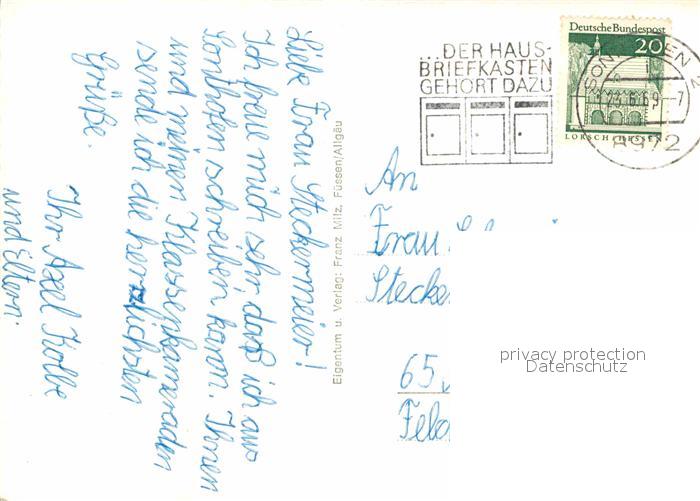 Liebe Frau Steckermeier!
Ich freue mich sehr, daß ich aus
Sonthofen schreiben kann. Ihnen
und meinen Klassenkameraden
sende ich die herzlichsten
Grüße.
Ihr Axel Kolbe
und Eltern.
Eigentum u. Verlag: Franz Milz, Füssen/Allgäu
...DER HAUS-
BRIEFKASTEN
GEHÖRT DAZU
Deutsche Bundespost
20
LORSCH/HESSEN
23.6.69-7
8972
An
Frau
Stecke
65
Feld
privacy protection
Datenschutz